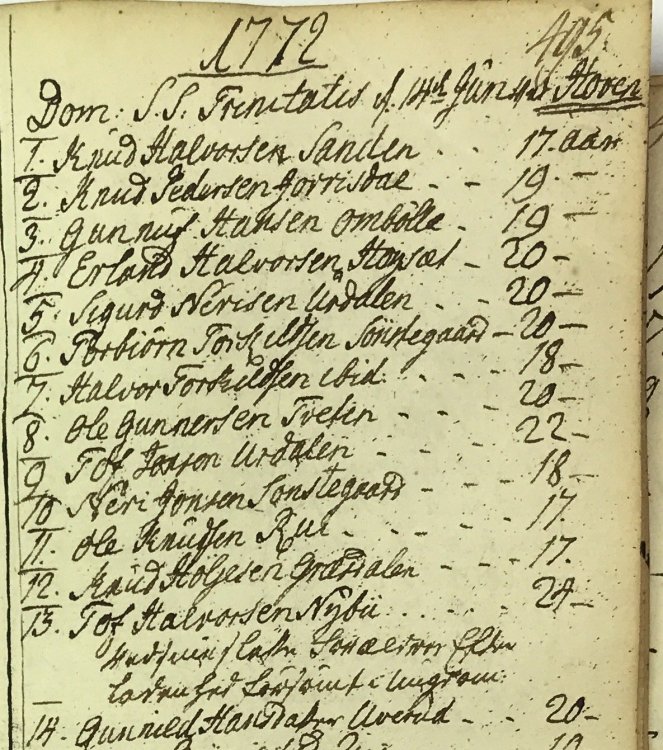 1772
495
Dom: S.S: Trinitatis d. 14de Jun: Hoven
1. Knud Halvorsen Sanden - - 17. aar
2. Knud Pedersen Jorrisdal - - 19 -
3. Gunnuf Hansen Ombølle - 19 -
4. Erland Halvorsen Haysæt - 20 -
5. Sigurd Nerisen Urdalen - - 20 -
6. Torbiörn Torkildsen Sönstegaard - 20 -
7. Halvor Torkildsen ibid - - - 18 -
8. Ole Gunnersen Tveten - - - 20 -
9. Tof Jonson Urdalen - - - 22 -
10 Neri Jonsen Sonstegaard - - - 18 -
11. Ole Knudsen Rui - - - - 17.
12. Knud Holjesen Græsdalen - - - 17.
13. Tof Halvorsen Nybu - - - - 24 -
14. Gunnild Hansdatter Uverud - - - 20 -